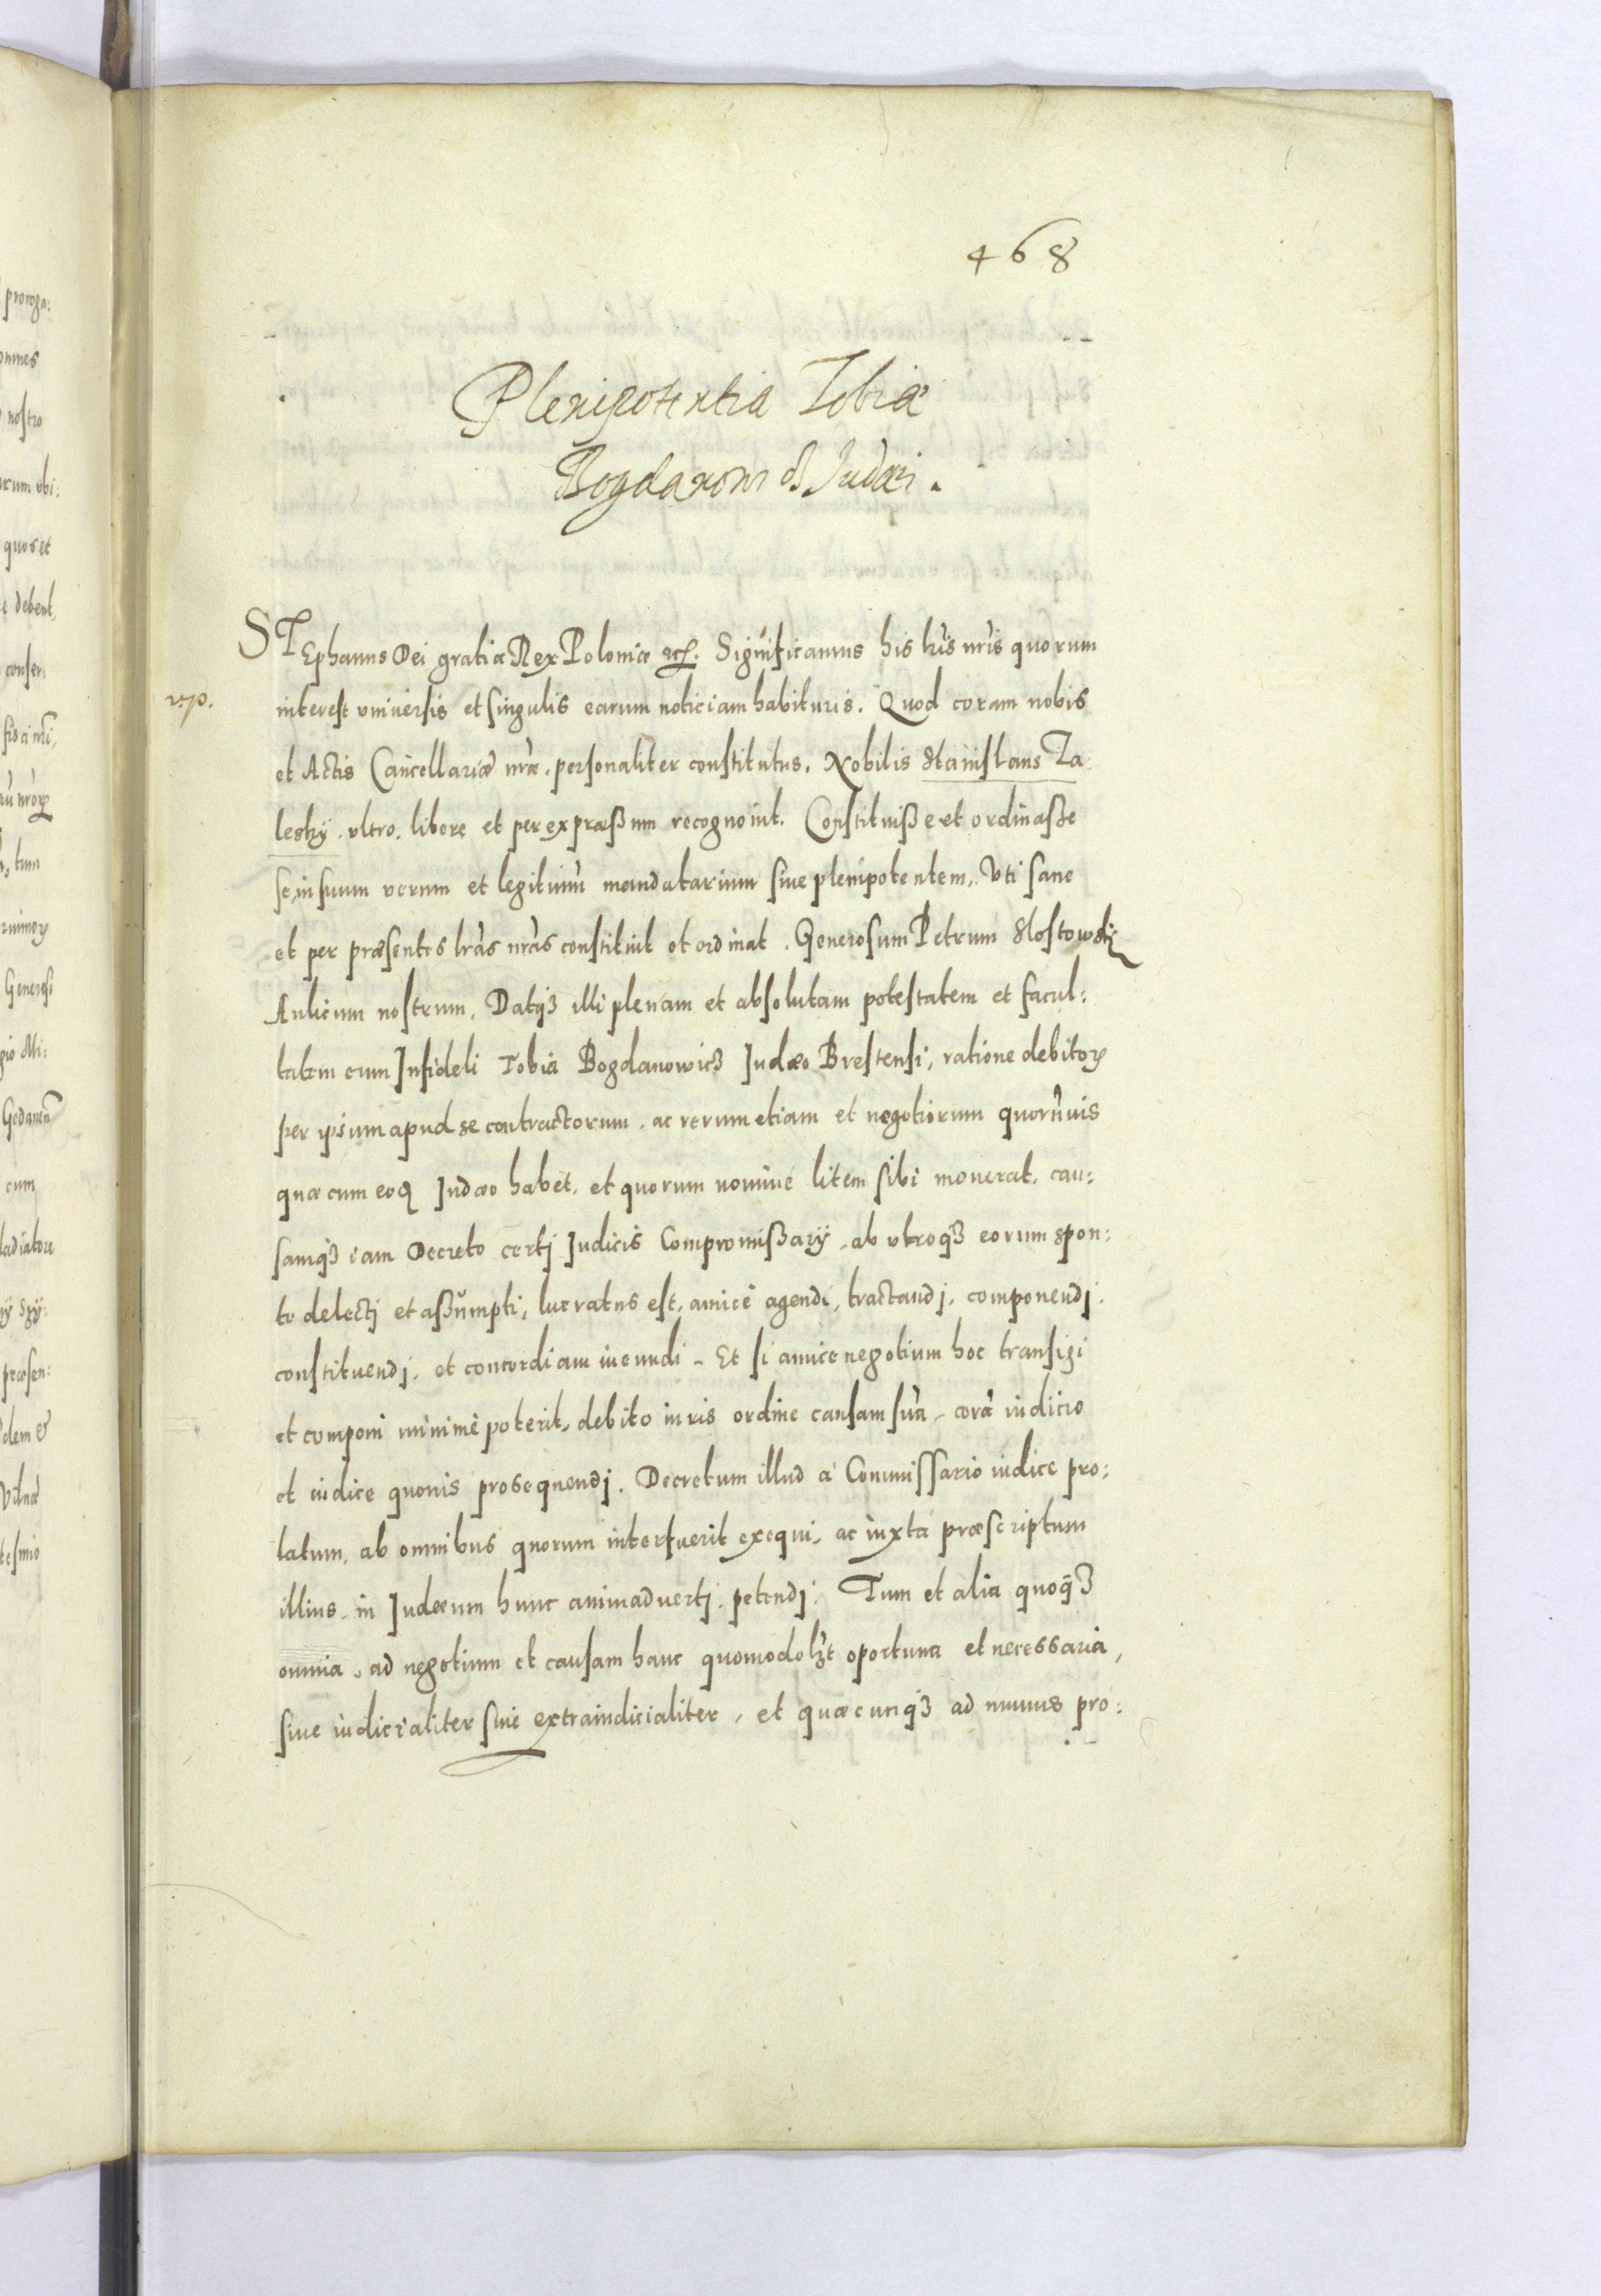 468
Plenipotentia Tobiæ
Bogdanowi[cz] Judæi.
STEphanus Dei gratia Rex Poloniæ etc. Significamus his lris nris quorum
interest vniuersis et singulis earum noticiam habituris. Quod coram nobis
et Actis Cancellariæ nræ. personaliter constitutus. Nobilis Stanislaus Za
leskÿ. vltro. libere et per expræßum recognouit. Constituiße et ordinaße
se, in suum verum et legitimũ mandatarium siue plenipotentem. Vti sane
et per præsentes lras nras constituit et ordinat. Generosum Petrum Slostowski
Aulicum nostrum. Datqȝ illi plenam et absolutam potestatem et facul:
tatem cum Infideli Tobia Bogdanowicz Judæo Brestensi, ratione debitoꝝ
per ipsum apud se contractorum. ac rerum etiam et negotiorum quorũuis
quæ cum eoꝗ Judæo habet. et quorum nomine litem sibi mouerat. cau:
samqȝ eam Decreto certj Judicis Compromißarÿ. ab vtroqȝ eorum spon:
te delectj et aßumpti, lucratus est. amicè agendi, tractandj. componendj.
constituendj. et concordiam ineundi. Et si amice negotium hoc transigi
et componi minimè poterit. debito iuris ordine causam suã. corã iudicio
et iudice quouis prosequendj. Decretum illud à Commissario iudice pro:
latum. ab omnibus quorum interfuerit exequi. ac iuxta præscriptum
illius. in Judæum hunc animaduertj. petendj. Tum et alia quoqȝ
omnia. ad negotium et causam hanc quomodolȝt oportuna et necessaria,
siue iudicialiter siue extraiudicialiter, et quæcunqȝ ad munus pro: